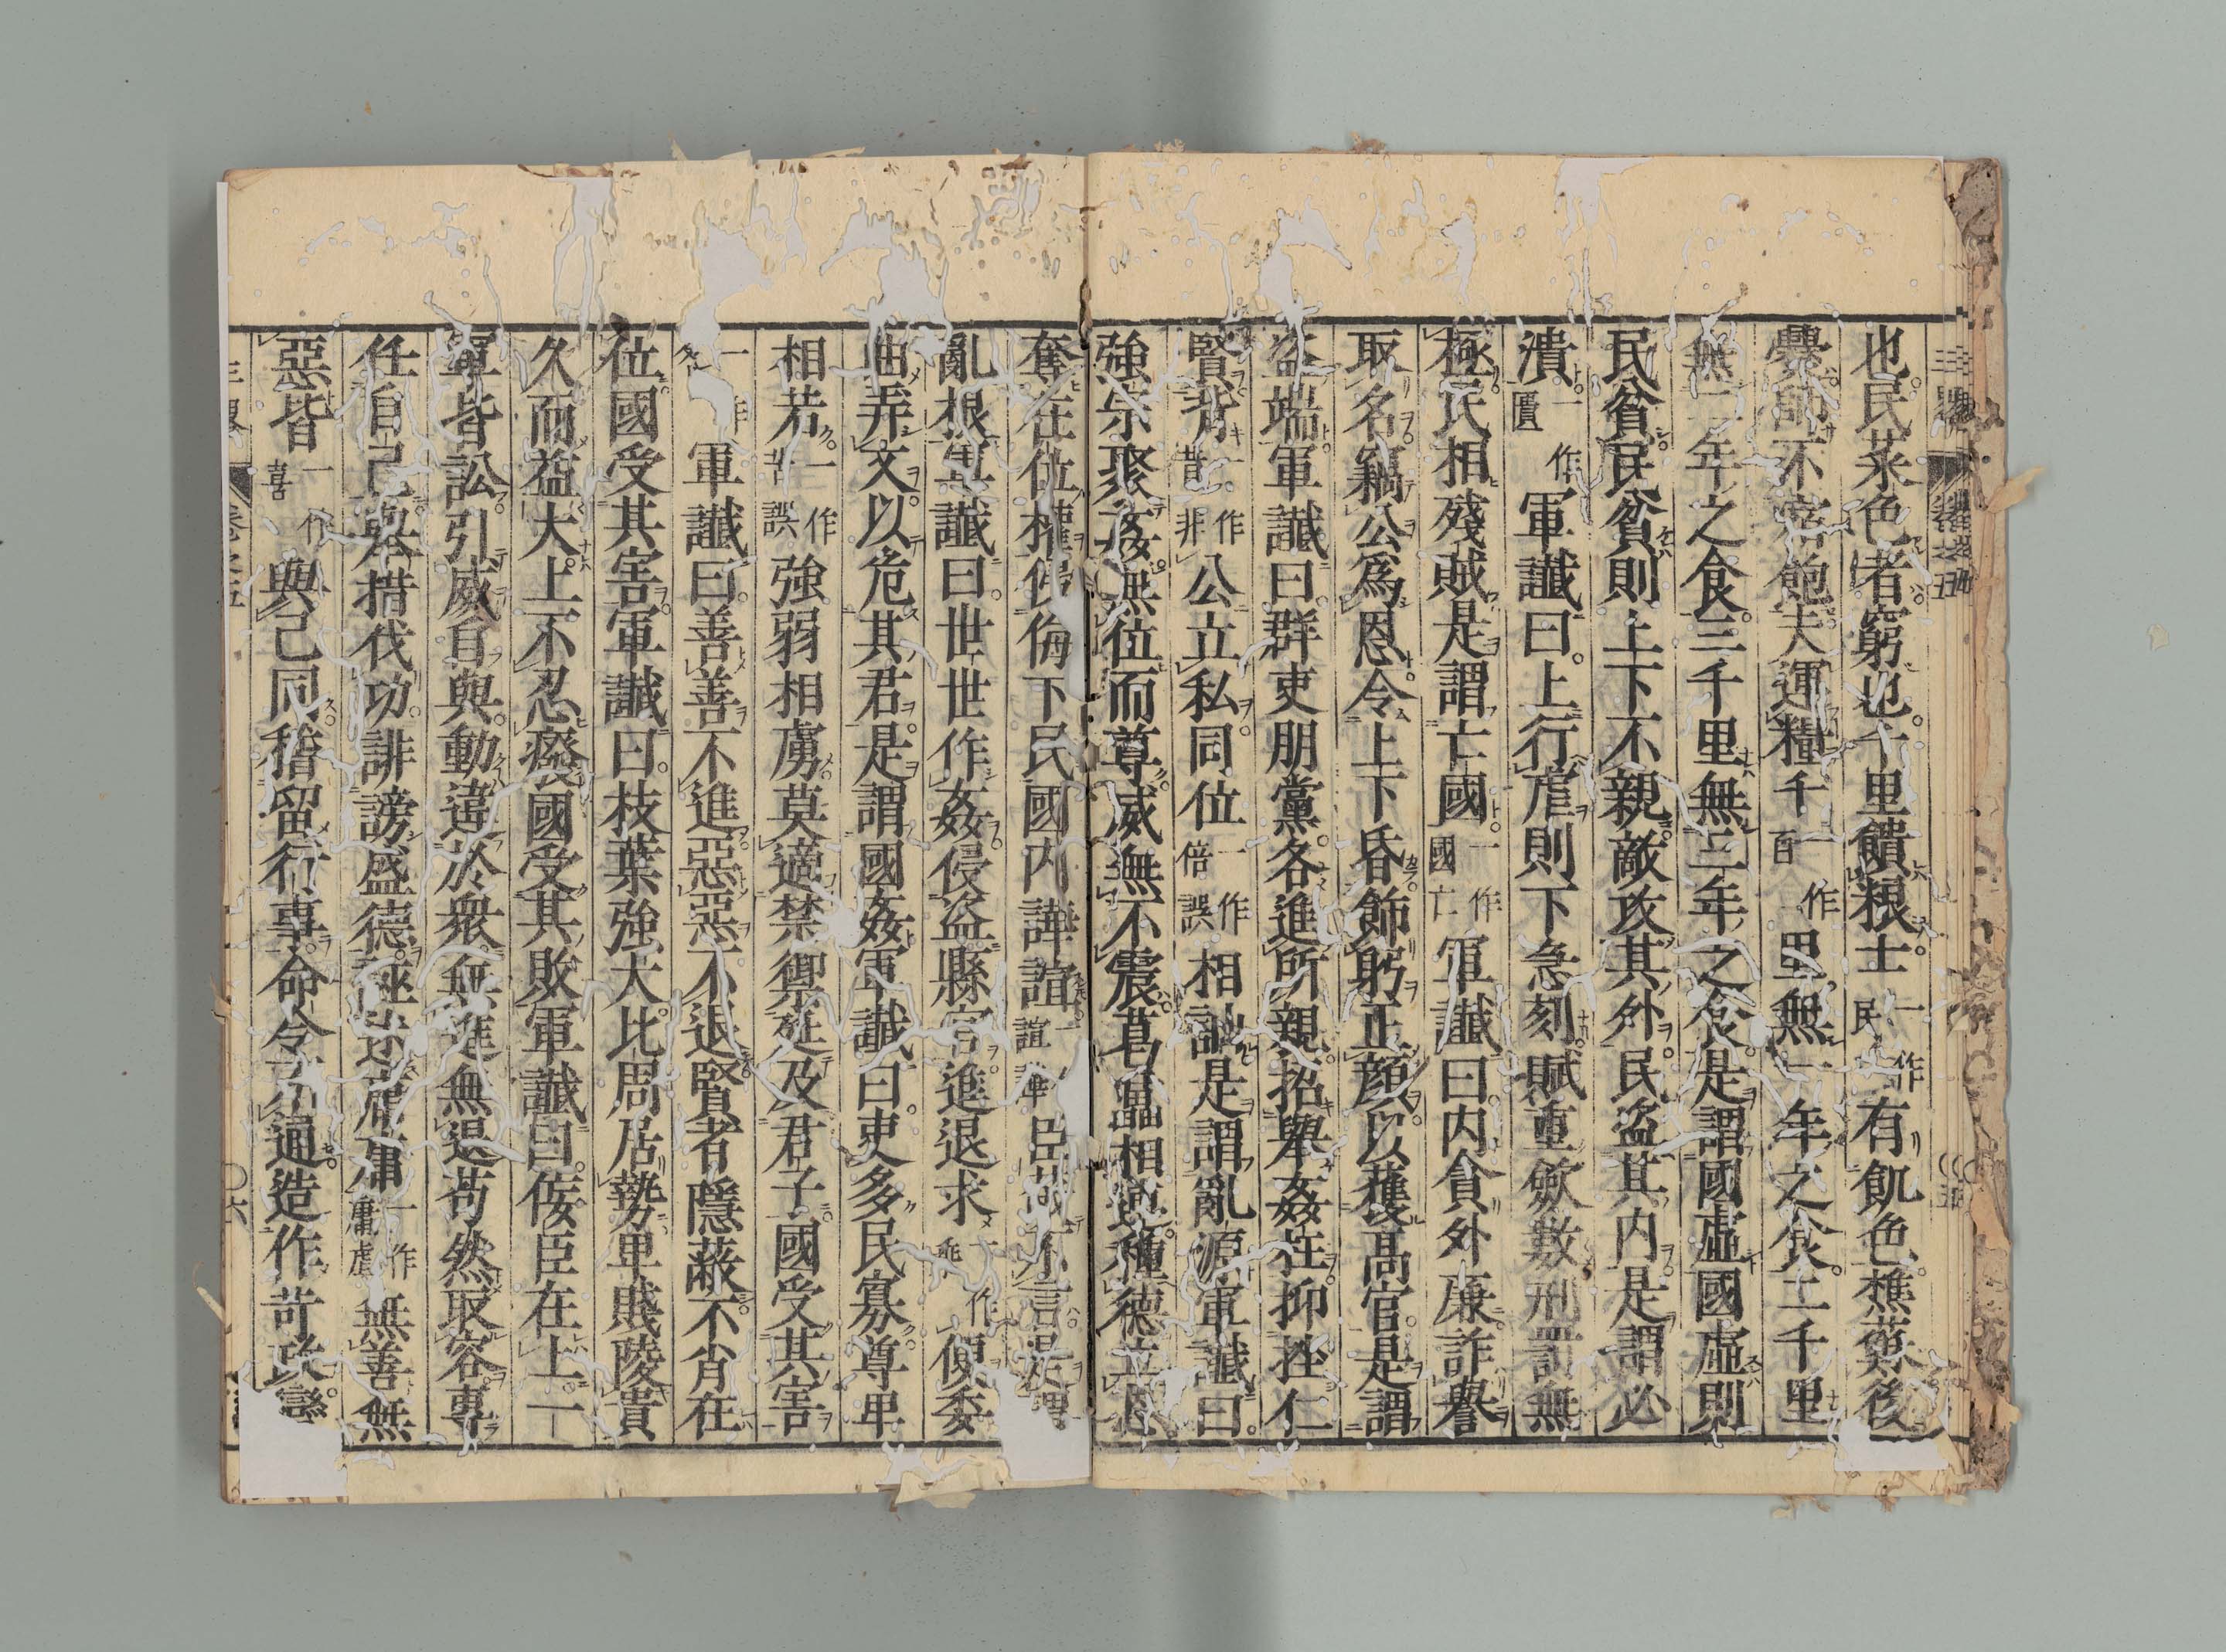 也民菜色者窮也千里饋粮士一作民有飢色樵蘇後
爨師不宿飽夫運糧千一作百里無一年之食二千里
無二年之食三千里無三年之食是謂國虛國虛則
民貧民貧則上下不親敵攻其外民盗其内是謂必
潰一作匱軍讖曰上行虐則下急刻賦重斂數刑罰無
極民相殘賊是謂亡國一作國亡軍讖曰内貪外廉詐譽
取名竊公爲恩令上下昏飾躬正顔以獲髙官是謂
盗端軍讖曰群吏朋黨各進所親招舉姦枉抑挫仁
賢背一作昔非公立私同位一作倍誤相訕是謂亂源軍讖曰
強宗聚姦無位而尊威無不震葛藟相連種德立恩
奪在位權侵侮下民國内譁諠一作諠譁臣蔽不言是謂
亂根軍讖曰世世作姦侵盗縣官進退求一作乖便委
曲弄文以危其君是謂國姦軍讖曰吏多民寡尊卑
相若一作苦誤強弱相虜莫適禁禦延及君子國受其害
一作軍讖曰善善不進惡惡不退賢者隱蔽不肖在
位國受其害軍讖曰枝葉強大比周居勢卑賤陵貴
久而益大上不忍癈國受其敗軍讖曰佞臣在上一
軍皆訟引威自與動違於衆無進無退苟然取容專
任自己舉措伐功誹謗盛德誣述庸庸一作庸虐無善無
惡皆一作喜與己同稽留行事命令不通造作苛政變
三畧 卷之五 〇五
卷之五 〇六